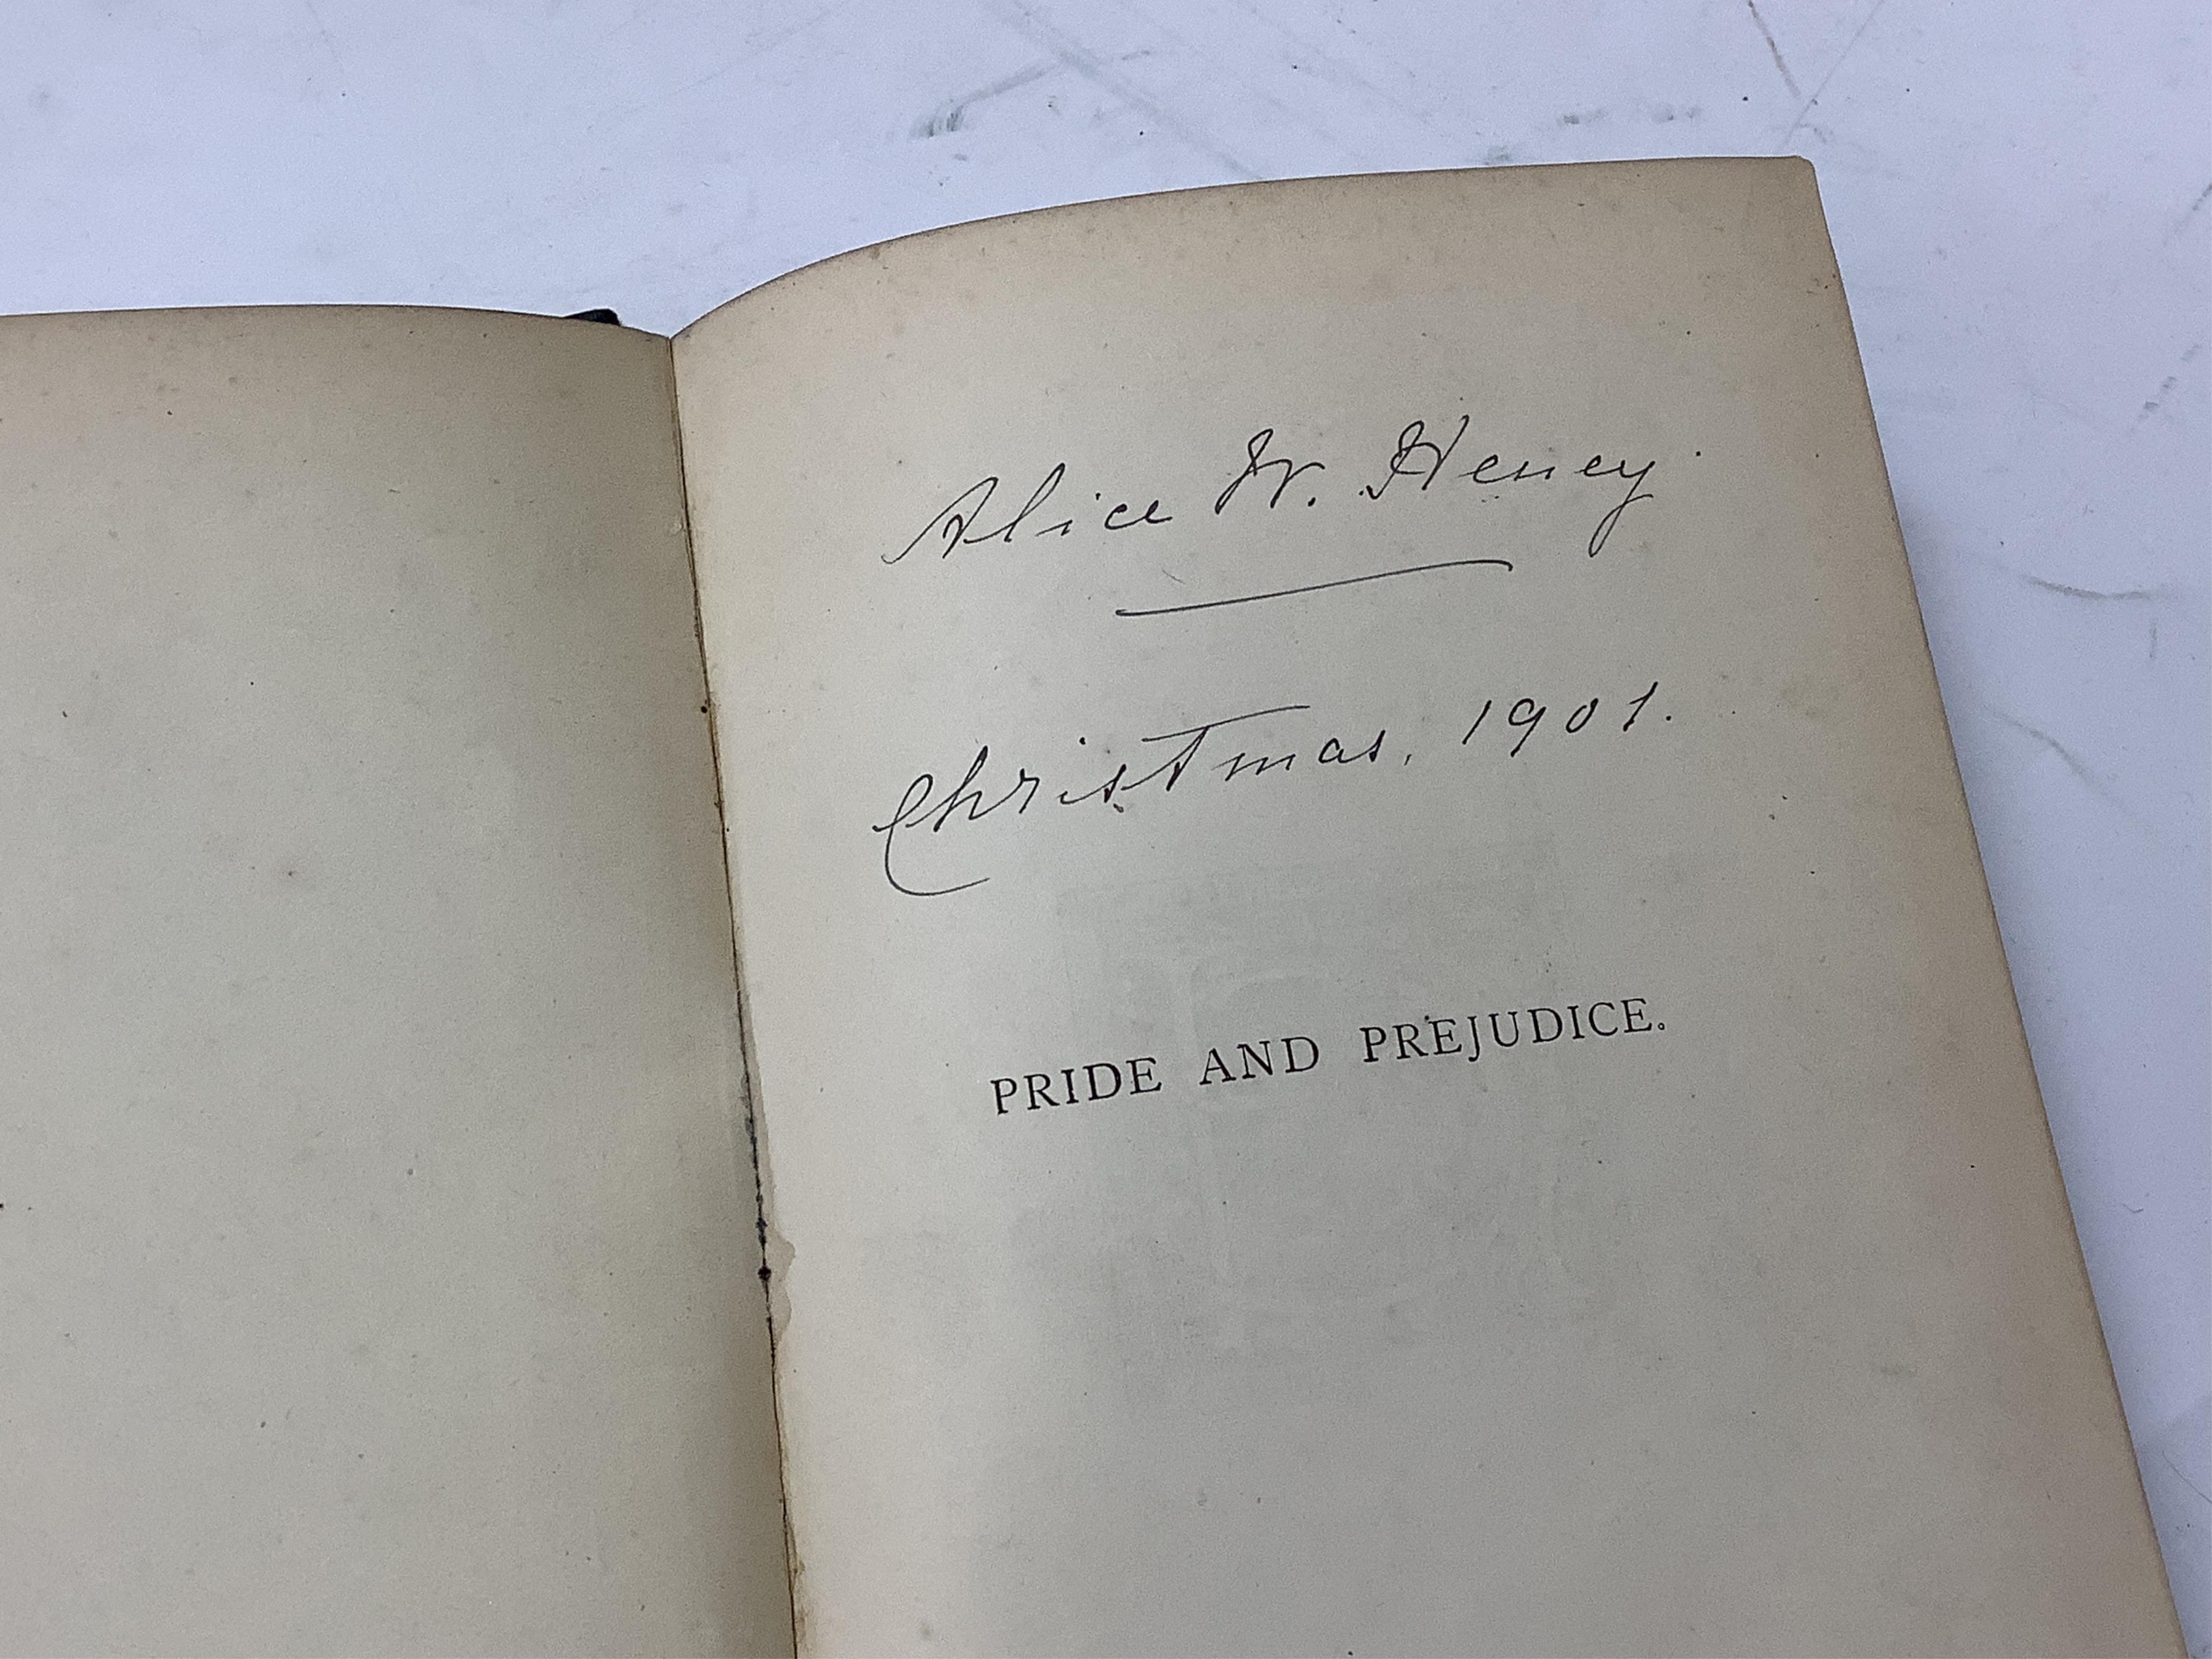 Alice W. Heney.
Christmas, 1901.
PRIDE AND PREJUDICE.